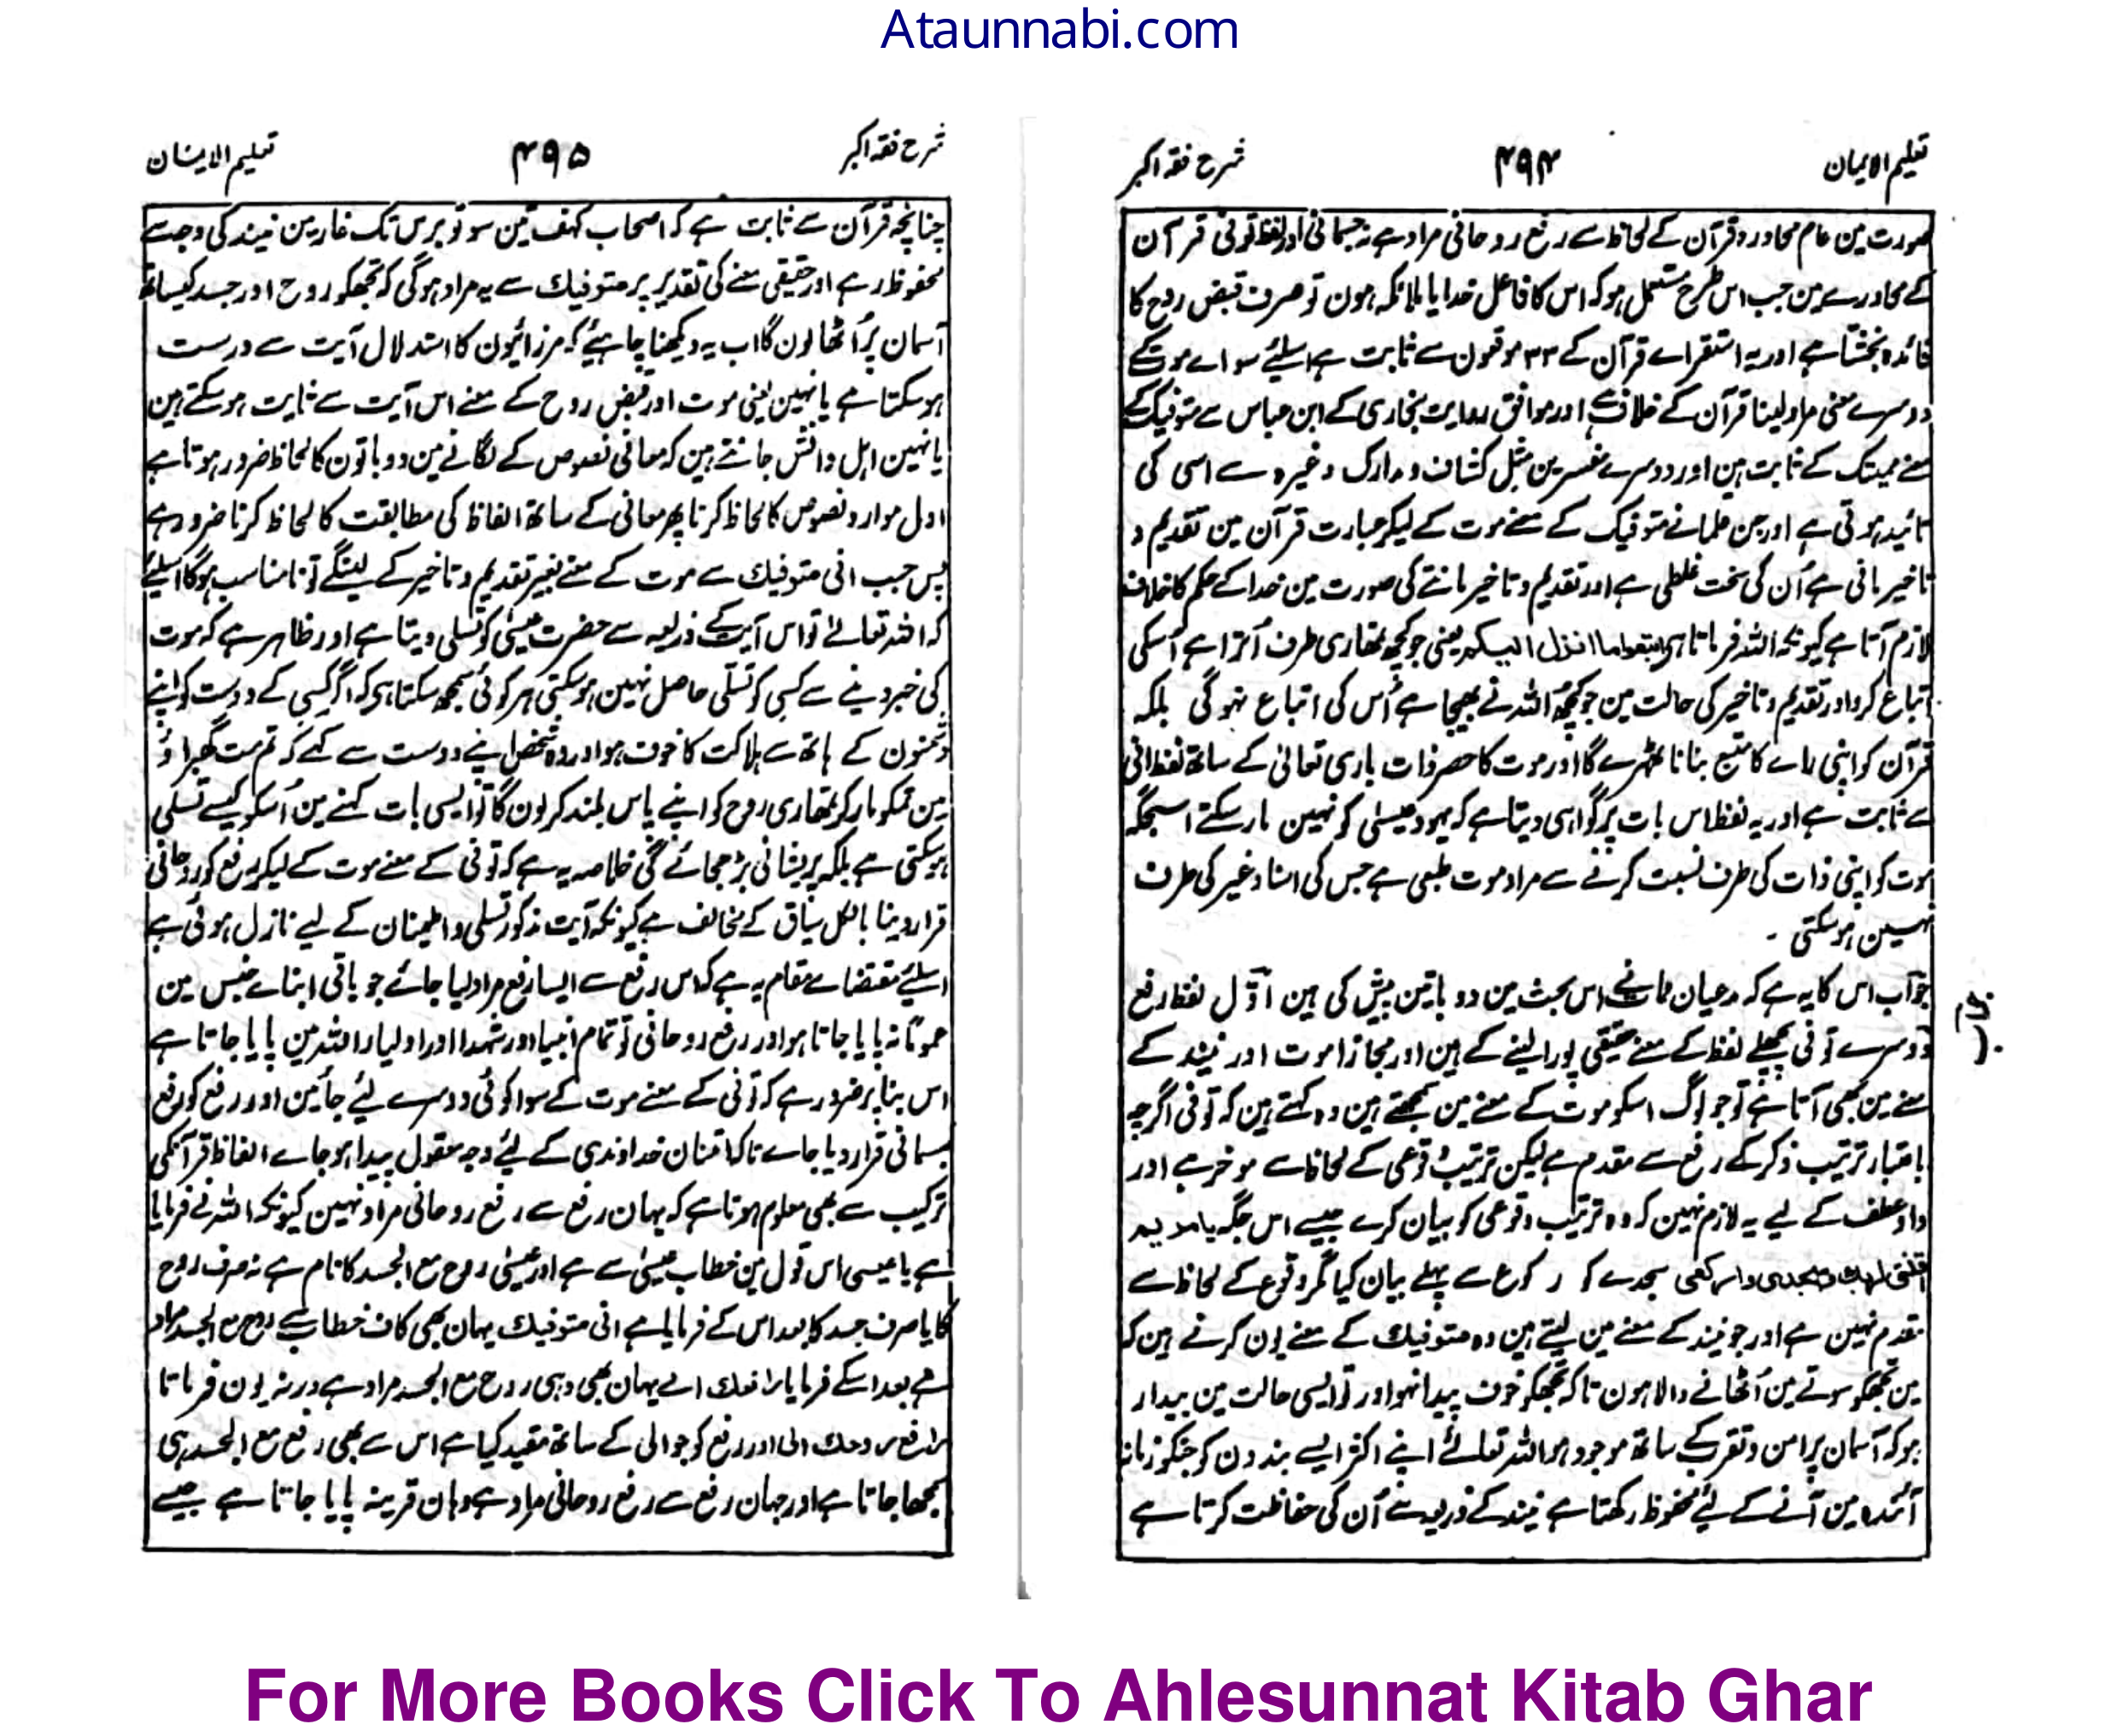 Ataunnabi.com
تعلیم الایمان ۴۹۴ شرح فقہ اکبر
صورت مین عام محاورہ قرآن کے لحاظ سے رفع روحانی مراد ہے نہ جسمانی اور لفظ توفی قرآن
کے محاورے مین جب اس طرح مستعمل ہو کہ اس کا فاعل خدا یا ملائکہ ہون تو صرف قبض روح کا
فائدہ بخشتا ہے اور یہ استقراے قرآن کے ۲۳ موقعون سے ثابت ہے اسلیے سواے موت کے
دوسرے معنی مراد لینا قرآن کے خلاف ہے اور موافق روایت بخاری کے ابن عباس سے متوفیک کے
معنے ممیتک کے ثابت ہین اور دوسرے مفسرین مثل کشاف و مدارک وغیرہ سے اسی کی
تائید ہوتی ہے اور جن علما نے متوفیک کے معنے موت کے لیکر عبارت قرآن مین تقدیم و
تاخیر مانی ہے اُن کی سخت غلطی ہے اور تقدیم و تاخیر ماننے کی صورت مین خدا کے حکم کا خلاف
لازم آتا ہے کیونکہ اللہ فرماتا ہی اتبعوا ما انزل الیکم یعنی جو کچھ تمھاری طرف اُترا ہے اُسکی
اتباع کرو اور تقدیم و تاخیر کی حالت مین جو کچھ اللہ نے بھیجا ہے اُس کی اتباع نہو گی بلکہ
قرآن کو اپنی راے کا متبع بنانا ٹھہرے گا اور موت کا حصر ذات باری تعالیٰ کے ساتھ لفظ انی
سے ثابت ہے اور یہ لفظ اس بات پر گواہی دیتا ہے کہ یہود عیسیٰ کو نہین مار سکتے اسجگہ
موت کو اپنی ذات کی طرف نسبت کرنے سے مراد موت طبعی ہے جس کی اسناد غیر کی طرف
نہین ہو سکتی ۔
جواب اس کا یہ ہے کہ مدعیان نے اس بحث مین دو باتین پیش کی ہین اوّل لفظ رفع
دوسرے توفی پچھلے لفظ کے معنے حقیقی پورا لینے کے ہین اور مجازا موت اور نیند کے
معنے مین بھی آتا ہے تو جو لوگ اسکو موت کے معنے مین سمجھتے ہین وہ کہتے ہین کہ توفی اگرچہ
باعتبار ترتیب ذکر کے رفع سے مقدم ہے لیکن ترتیب وقوعی کے لحاظ سے موخر ہے اور
واو عطف کے لیے یہ لازم نہین کہ وہ ترتیب وقوعی کو بیان کرے جیسے اس جگہ یامریم
اقنتی لربک واسجدی وارکعی سجدے کو رکوع سے پہلے بیان کیا مگر وقوع کے لحاظ سے
مقدم نہین ہے اور جو نیند کے معنے مین لیتے ہین وہ متوفیک کے معنے یون کرتے ہین کہ
مین تجھکو سوتے مین اُٹھانے والا ہون تاکہ تجھکو خوف پیدا نہو اور تو ایسی حالت مین بیدار
ہو کہ آسمان پر امن و تقرب کے ساتھ موجود ہو اللہ تعالےٰ اپنے اکثر ایسے بندون کو جنکو زمانہ
آئندہ مین آنے کے لیے محفوظ رکھتا ہے نیند کے ذریعہ سے اُن کی حفاظت کرتا ہے
جواب
شرح فقہ اکبر ۴۹۵ تعلیم الایمان
چنانچہ قرآن سے ثابت ہے کہ اصحاب کہف تین سو نو برس تک غار مین نیند کی وجہ سے
محفوظ رہے اور حقیقی معنے کی تقدیر پر متوفیك سے یہ مراد ہو گی کہ تجھکو روح اور جسد کیساتھ
آسمان پر اُٹھا لون گا اب یہ دیکھنا چاہیئے کہ مرزائیون کا استدلال آیت سے درست
ہو سکتا ہے یا نہین یعنی موت اور قبض روح کے معنے اس آیت سے ثابت ہو سکتے ہین
یا نہین اہل دانش جانتے ہین کہ معانی نصوص کے لگانے مین دو باتون کا لحاظ ضرور ہوتا ہے
اول موارد نصوص کا لحاظ کرنا پھر معانی کے ساتھ الفاظ کی مطابقت کا لحاظ کرنا ضرور ہے
پس جب انی متوفیك سے موت کے معنے بغیر تقدیم و تاخیر کے لینگے تو نامناسب ہو گا اسلیئے
کہ اللہ تعالےٰ تو اس آیت کے ذریعہ سے حضرت عیسیٰ کو تسلی دیتا ہے اور ظاہر ہے کہ موت
کی خبر دینے سے کسی کو تسلّی حاصل نہین ہو سکتی ہر کوئی سمجھ سکتا ہی کہ اگر کسی کے دوست کو اپنے
دشمنون کے ہاتھ سے ہلاکت کا خوف ہو اور وہ شخص اپنے دوست سے کہے کہ تم مت گھبراؤ
مین تمکو مار کر تمھاری روح کو اپنے پاس بلند کر لون گا تو ایسی بات کہنے مین اُسکو کیسے تسلی
ہو سکتی ہے بلکہ پریشانی بڑھ جائے گی خلاصہ یہ ہے کہ توفی کے معنے موت کے لیکر رفع کو روحانی
قرار دینا بالکل سیاق کے مخالف ہے کیونکہ آیت مذکور تسلی و اطمینان کے لیے نازل ہوئی ہے
اسلیئے مقتضاے مقام یہ ہے کہ اس رفع سے ایسا رفع مراد لیا جائے جو باقی ابناے جنس مین
عموماً نہ پایا جاتا ہو اور رفع روحانی تو تمام انبیا اور شہدا اور اولیاء اللہ مین پایا جاتا ہے
اس بنا پر ضرور ہے کہ توفی کے معنے موت کے سوا کوئی دوسرے لیئے جائین اور رفع کو رفع
جسمانی قرار دیا جاے تاکہ امتنان خداوندی کے لیئے وجہ معقول پیدا ہو جاے الفاظ قرآنکی
ترکیب سے بھی معلوم ہوتا ہے کہ یہان رفع سے رفع روحانی مراد نہین کیونکہ اللہ نے فرمایا
ہے یا عیسی اس قول مین خطاب عیسیٰ سے ہے اور عیسیٰ روح مع الجسد کا نام ہے نہ صرف روح
کا یا صرف جسد کا بعد اس کے فرمایا ہے انی متوفیك یہان بھی کاف خطاب سے روح مع الجسد مراد
ہے بعد اسکے فرمایا رافعك الی یہان بھی وہی روح مع الجسد مراد ہے ورنہ یون فرماتا
رافع روحك الی اور رفع کو جو الی کے ساتھ مقید کیا ہے اس سے بھی رفع مع الجسد ہی
سمجھا جاتا ہے اور جہان رفع سے رفع روحانی مراد ہے وہان قرینہ پایا جاتا ہے جیسے
For More Books Click To Ahlesunnat Kitab Ghar